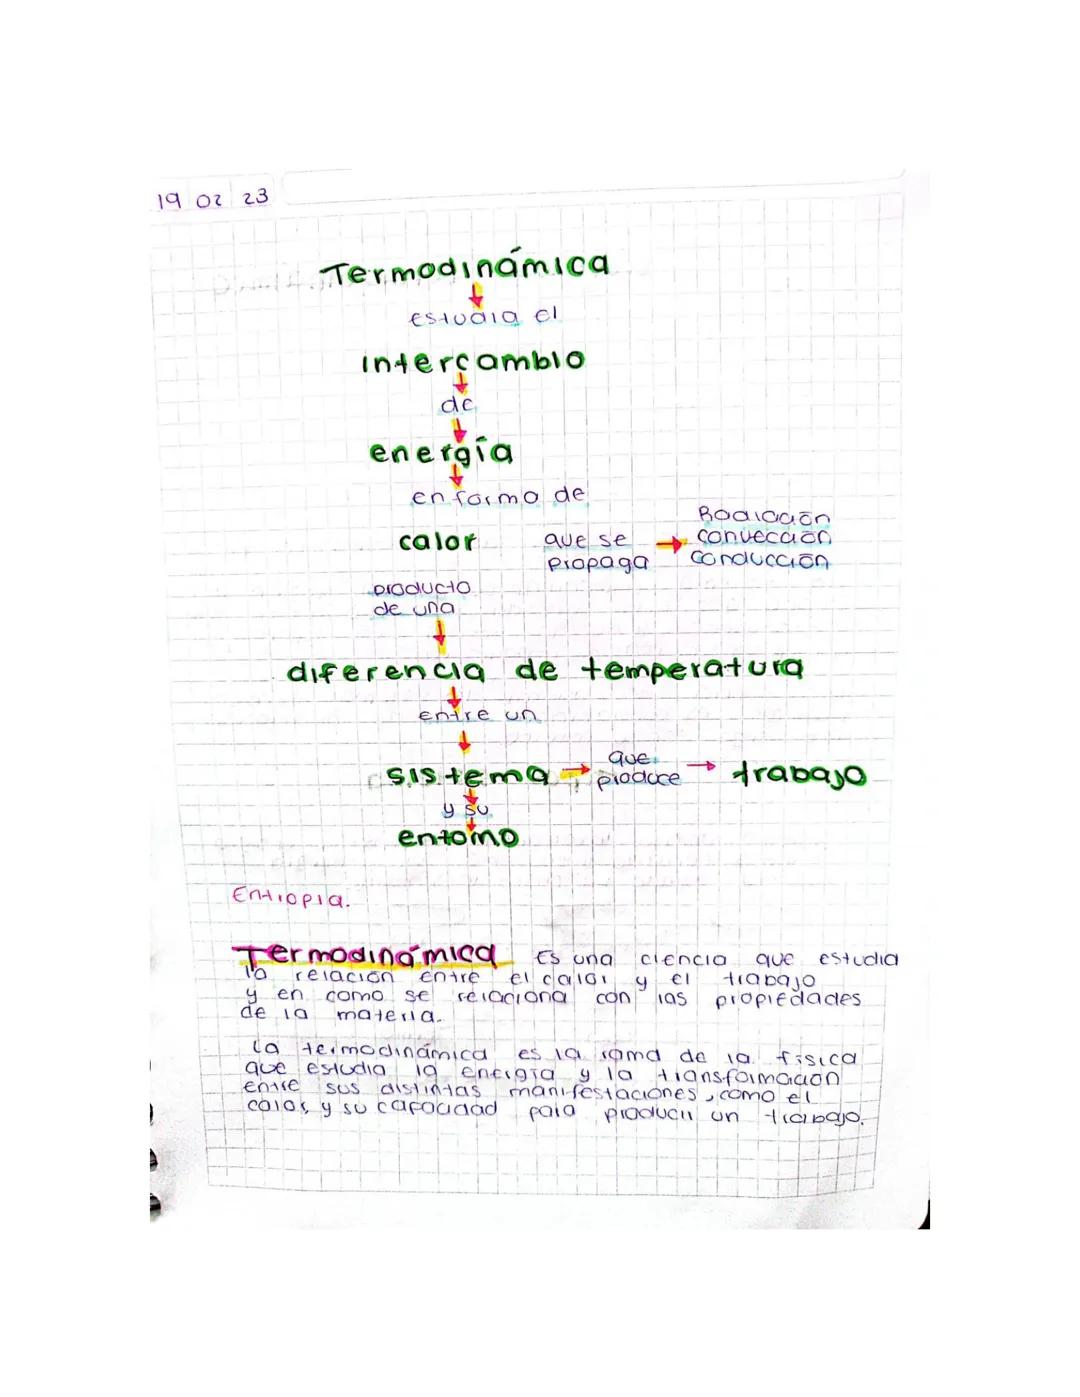 19 02 23
Termodinámica
estudia el
intercambio
de
energía
en forma de
calor
que se
propaga
Radiación
convección
conducción
producto
de una
diferencia de temperatura
entre un
sistema
que
produce
trabajo
y su
entorno
Entropia.
Termodinámica Es una ciencia que estudia
la relación entre el calor y el trabajo
y en como se relaciona con las propiedades
de la materia.
La termodinámica es la rama de la física
que estudia la energía y la transformación
entre sus distintas manifestaciones, como el
calor, y su capacidad para producir un trabajo.